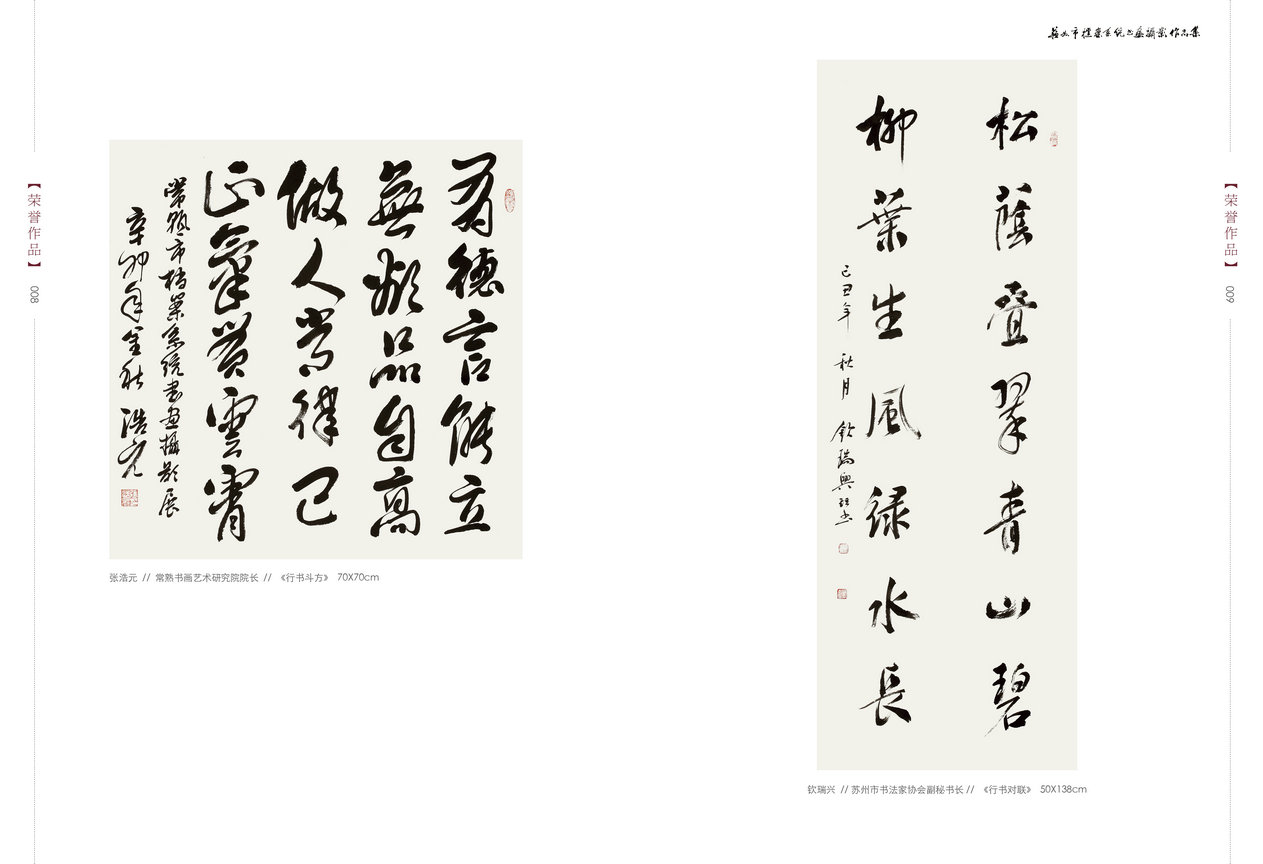 【荣誉作品】
008
有德言能立
無欲品自高
做人當律己
正氣貫雲霄
常熟市档案系统书画摄影展
辛卯年金秋 浩元
张浩元 // 常熟书画艺术研究院院长 // 《行书斗方》 70X70cm
松蔭叠翠青山碧
柳葉生風緑水長
己丑年 秋月 钦瑞興
钦瑞兴 // 苏州市书法家协会副秘书长 // 《行书对联》 50X138cm
【荣誉作品】
009